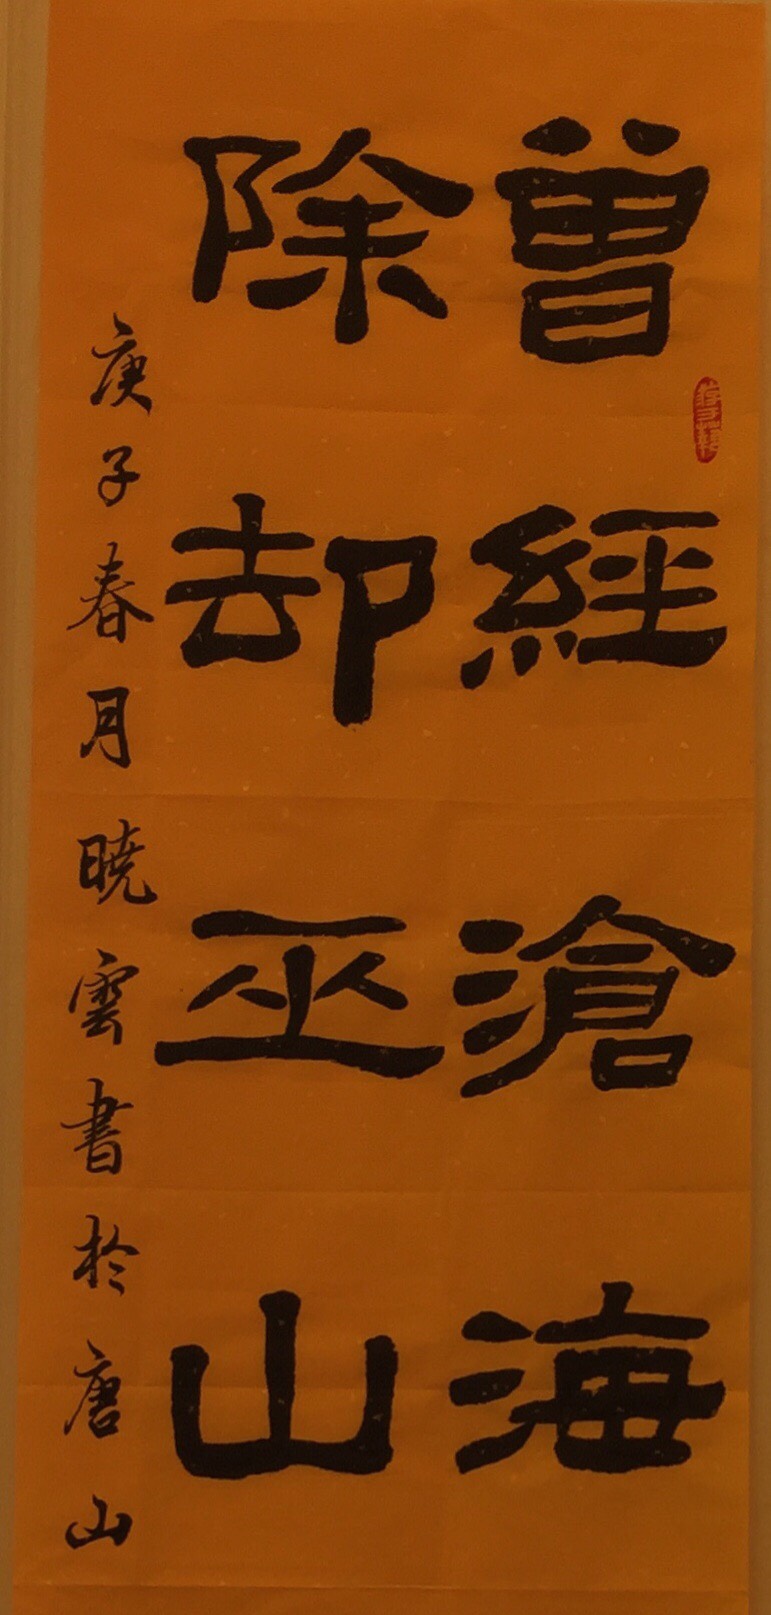 曾經滄海
除却巫山
庚子春月暁雲書於唐山